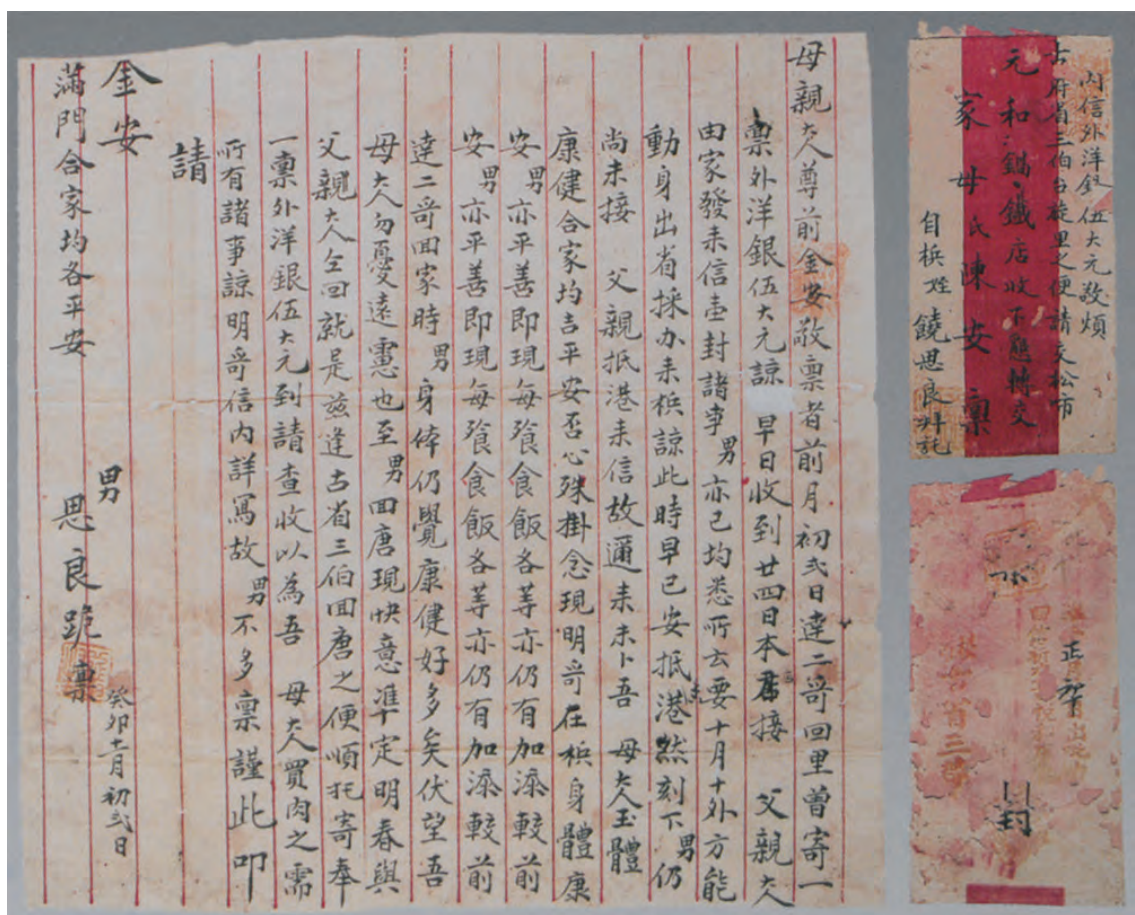 母親大人尊前金安敬禀者前月初弍日達二哥回里曾寄一
禀外洋銀伍大元諒早日收到廿四日本接 父親大
由家發来信壹封諸事男亦已均悉所云要十月十外方能
動身出省採办来梹諒此時早已安抵港然刻下男仍
尚未接 父親抵港来信故邇来未卜吾 母大人玉體
康健合家均吉平安否心殊掛念現明哥在梹身體康
安男亦平善即現每飡食飯各等亦仍有加添較前
安男亦平善即現每飡食飯各等亦仍有加添較前
達二哥回家時男身体仍覺康健好多矣伏望吾
母大人勿憂遠慮也至男回唐現快意準定明春與
父親大人仝回就是兹逢古省三伯回唐之便順托寄奉
一禀外洋銀伍大元到請查收以為吾 母大人買肉之需
所有諸事諒明哥信内詳寫故男不多禀謹此叩
請
金安
滿門合家均各平安
男 思良跪禀
癸卯十一月初弍日
内信外洋銀伍大元敬煩
古府省三伯台旋里之便請交松市
元和鐵店收下懇轉交
家母氏陳安禀
自梹姓饒思良拜託
正
封